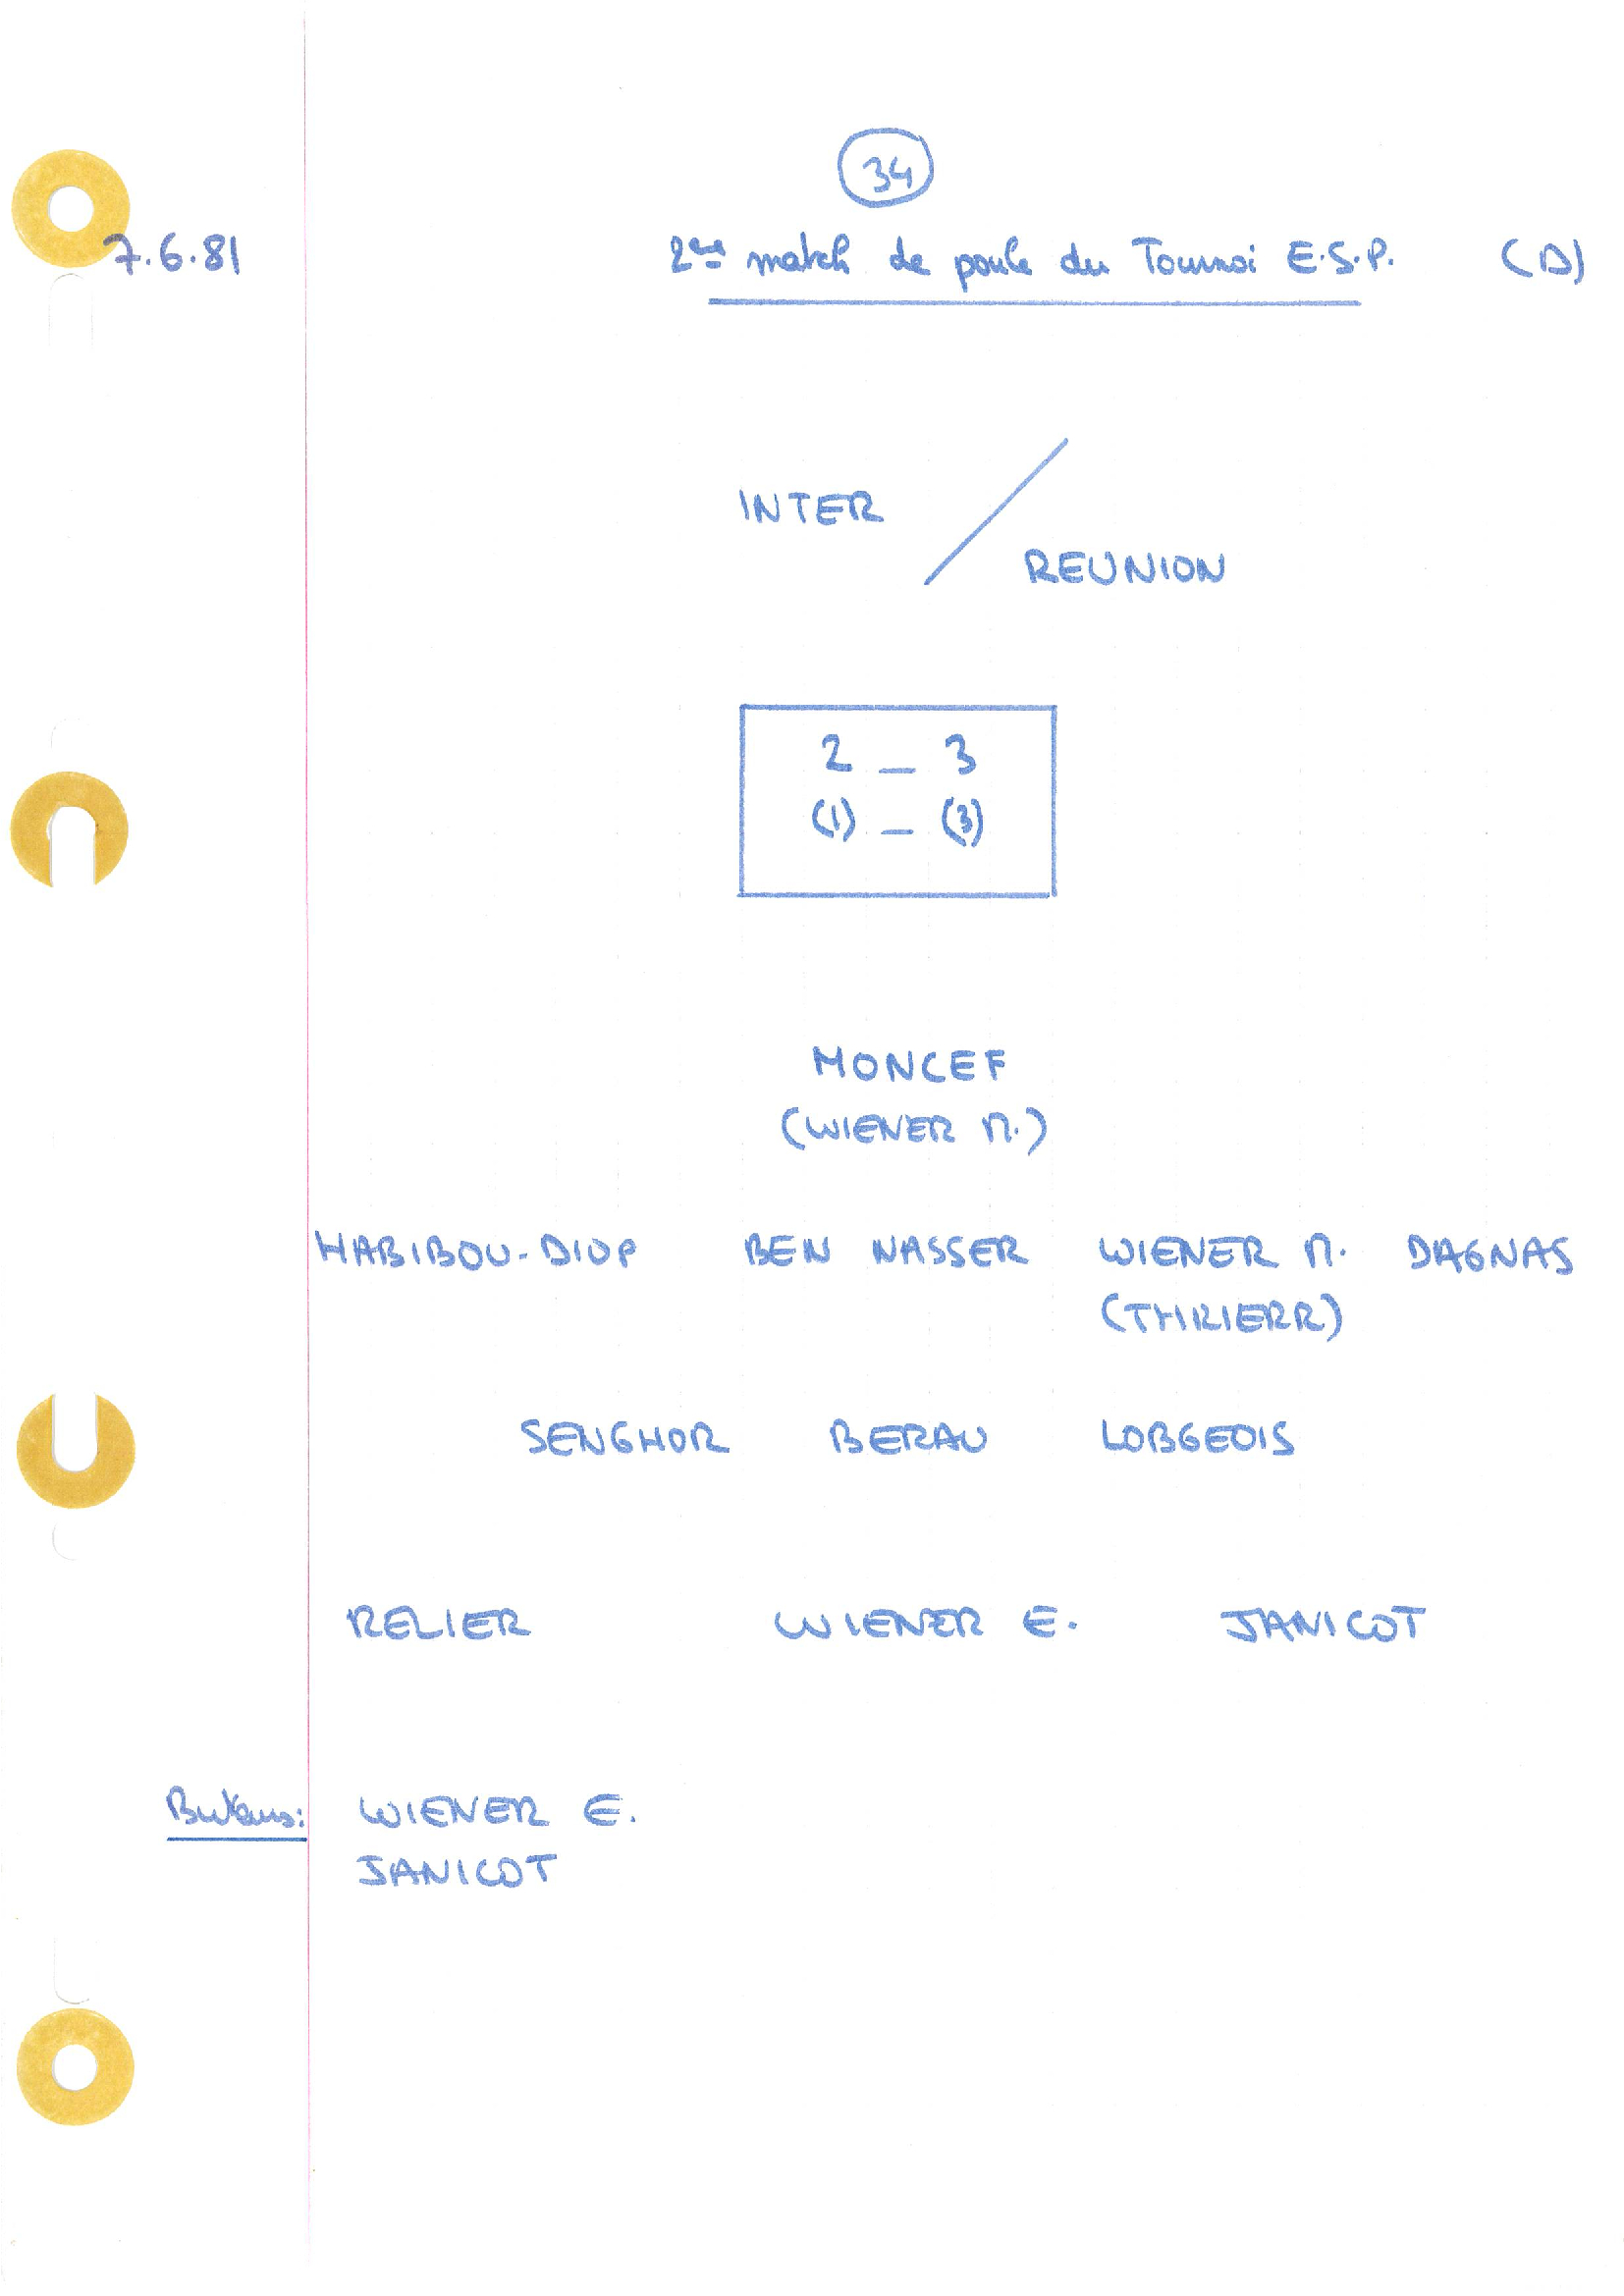 34
7.6.81 2ème match de poule du Tournoi E.S.P. (D)
INTER
REUNION
2 _ 3
(1) _ (3)
MONCEF
(WIENER M.)
HABIBOU-DIOP BEN NASSER WIENER M. DAGNAS
(THRIERR)
SENGHOR BERAU LOBGEOIS
RELIER WIENER E. JANICOT
Buteurs: WIENER E.
JANICOT